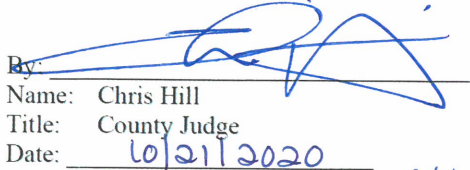 By:
Name: Chris Hill
Title: County Judge
Date: 10/21/2020